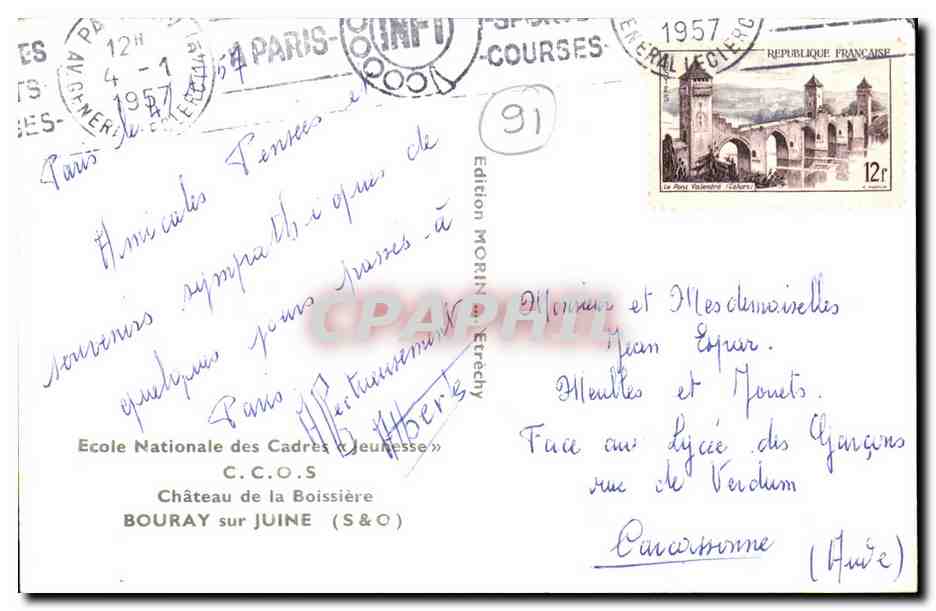 12H
4 - 1
1957
A PARIS-
INF1
-SPORTS
-COURSES-
1957
GENERAL LECLERC
REPUBLIQUE FRANÇAISE
12f
Le Pont Valentré (Cahors)
91
Paris le 4/1/57
Amicales Pensées et
souvenirs sympathiques de
quelques jours passés à
Paris
Affectueusement
Edition MORIN Etréchy
CPAPHIL
Monsieur et Mesdemoiselles
Jean Espar.
Meubles et Jouets.
Face au Lycée des Garçons
rue de Verdum
Carcassonne
(Aude)
Ecole Nationale des Cadres «Jeunesse»
C.C.O.S
Château de la Boissière
BOURAY sur JUINE (S&O)